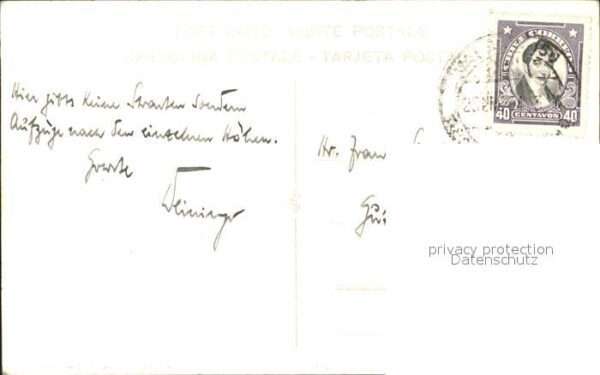 POST CARD - CARTE POSTALE
CARTOLINA POSTALE - TARJETA POSTAL
CHILE CORREOS
40 CENTAVOS 40
Hier gibts keine Strassen sondern
Aufzüge nach den einzelnen Höhen.
Hr. Franz
privacy protection
Datenschutz